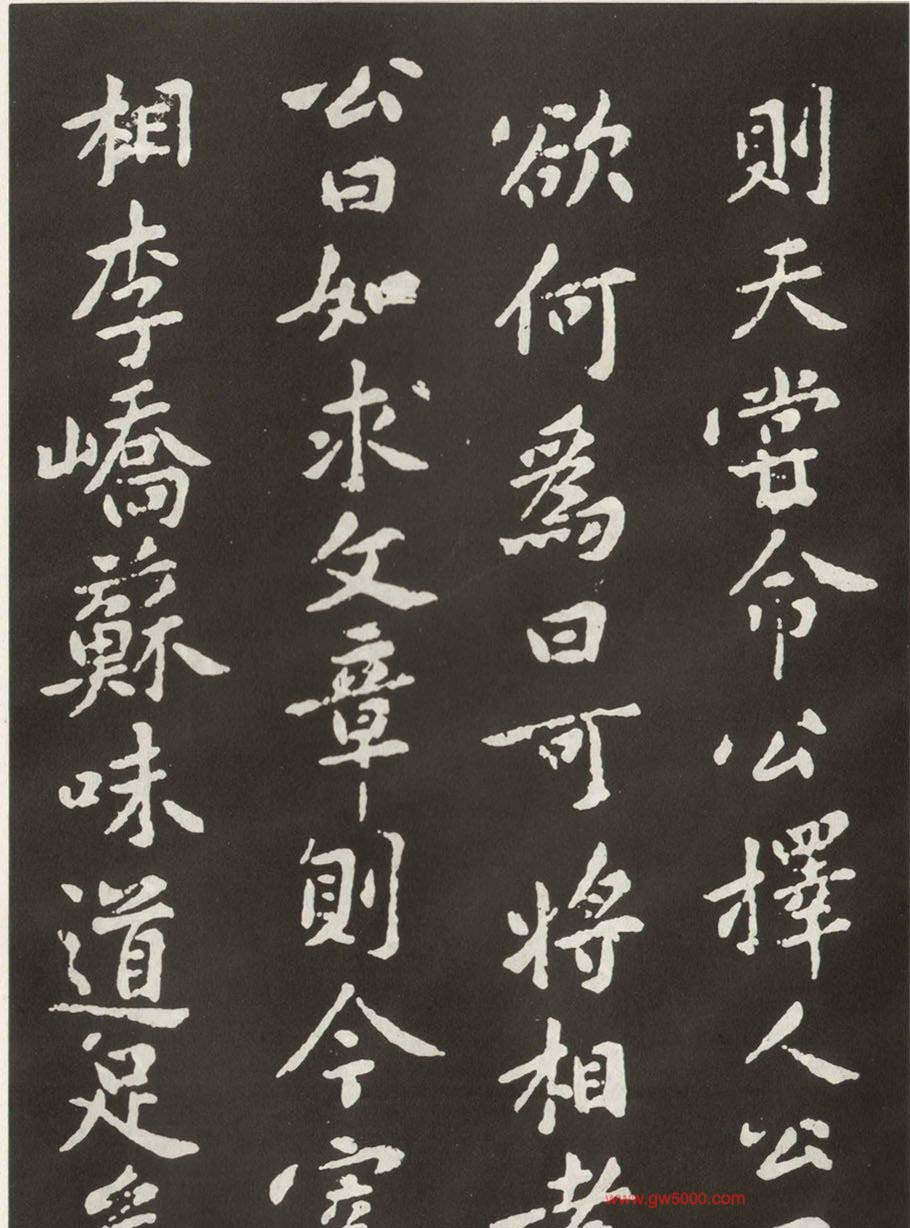 則天嘗命公擇人公
欲何爲曰可將相者
公曰如求文章則今宰
相李嶠蘇味道足矣
www.gw5000.com